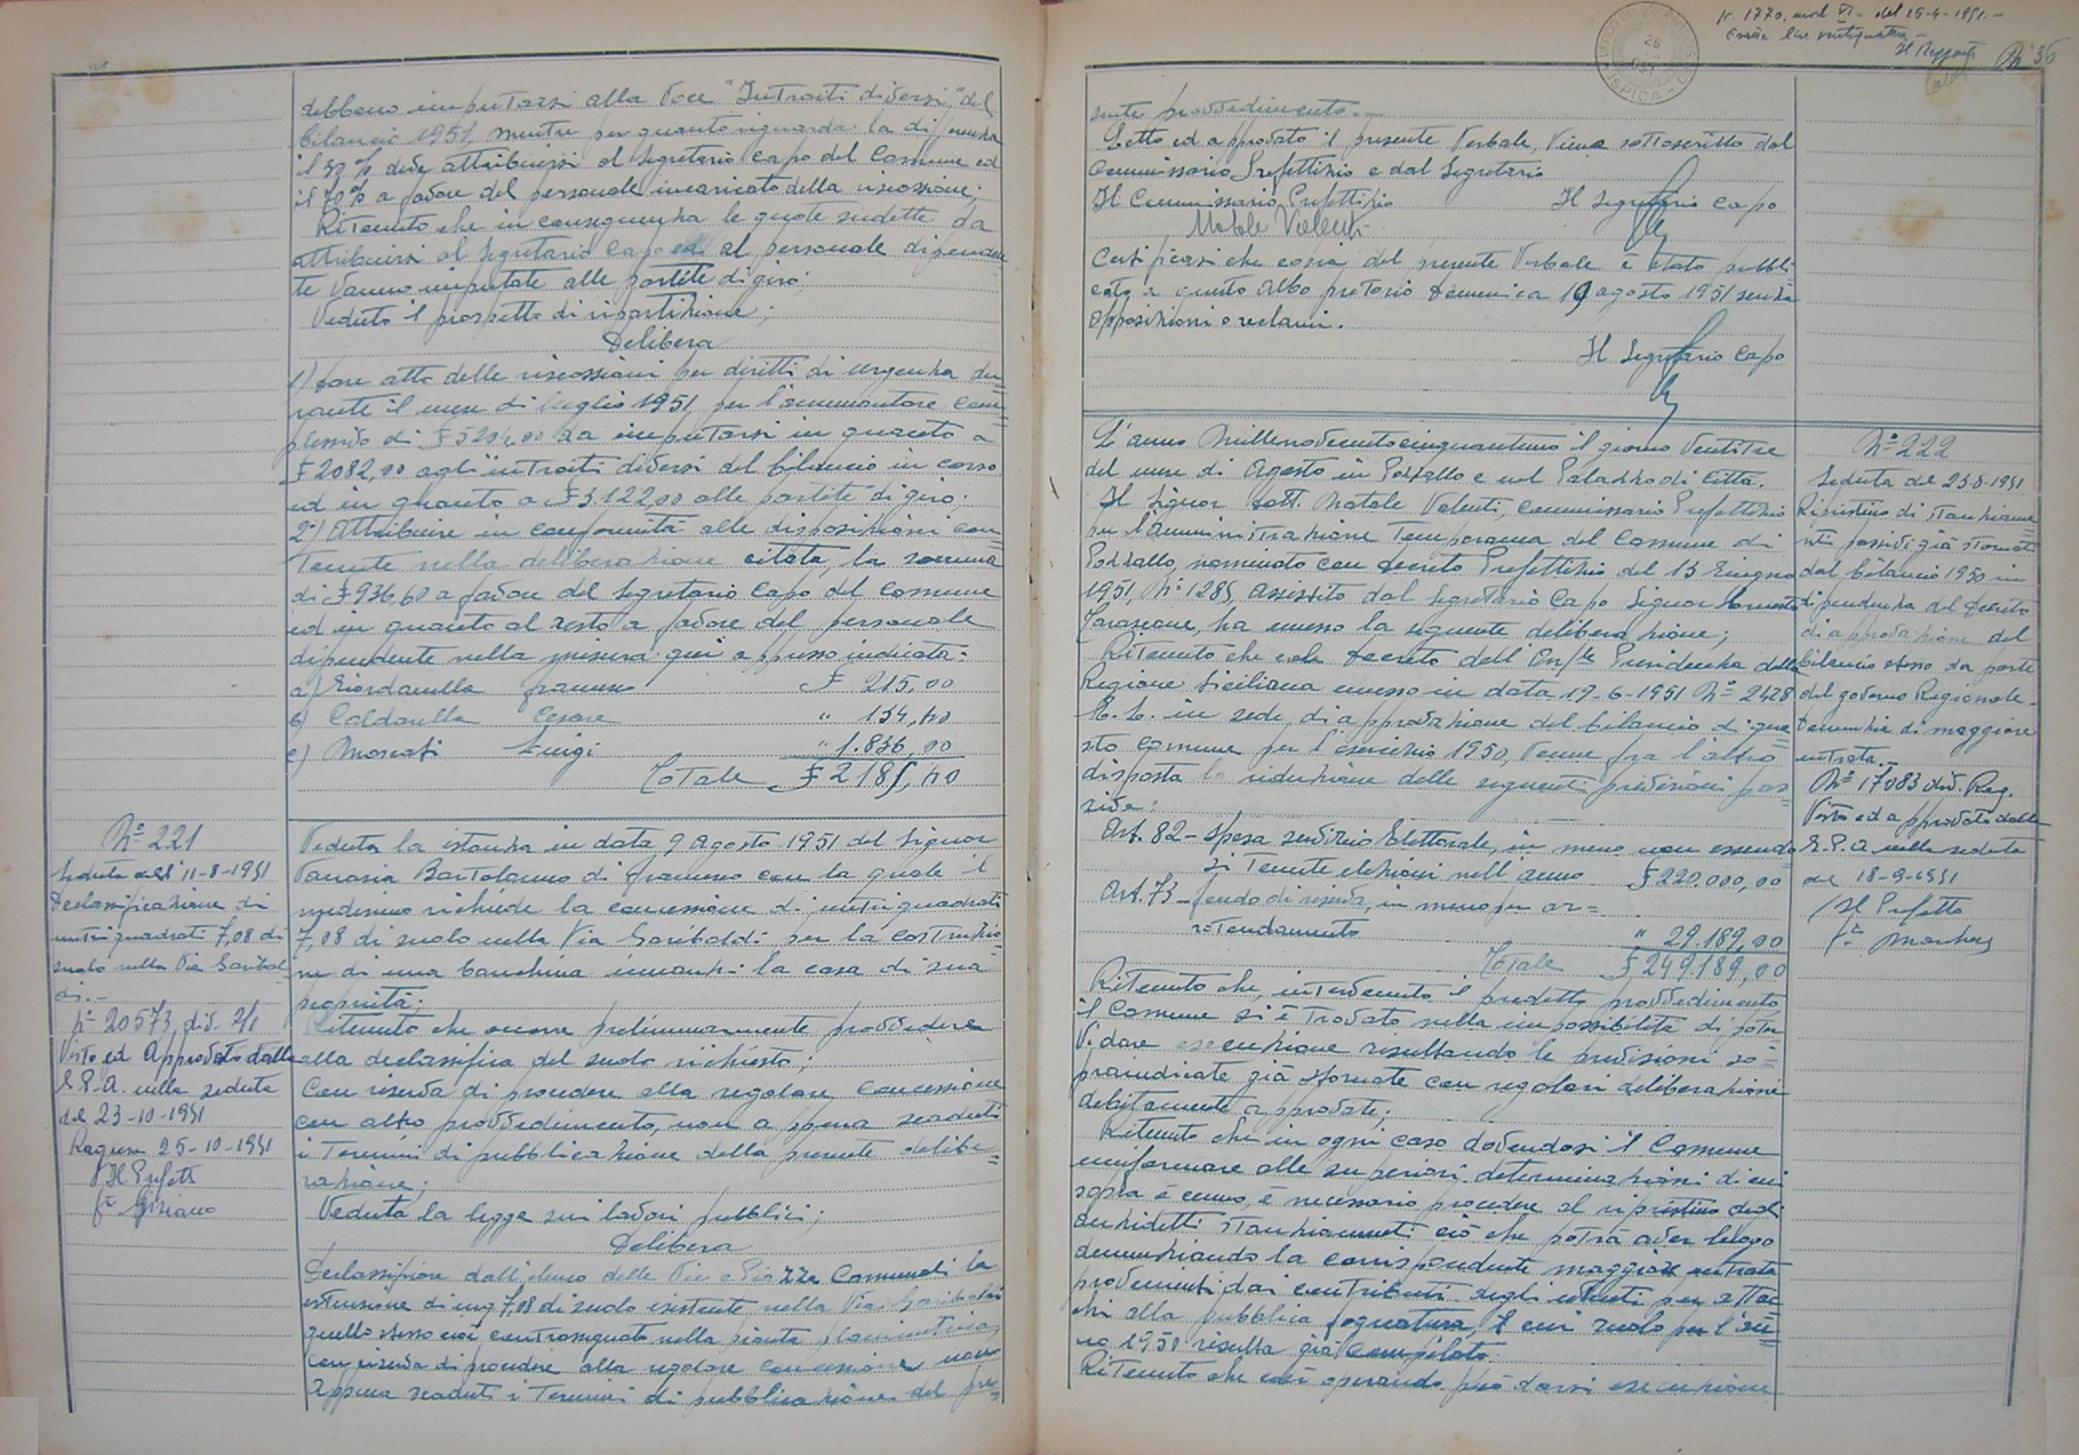 debbono imputarsi alla voce "Introiti diversi" del
bilancio 1951, mentre per quanto riguarda la differenza
il 30% deve attribuirsi al Segretario Capo del Comune ed
il 70% a favore del personale incaricato della riscossione;
Ritenuto che in conseguenza le quote sudette da
attribuirsi al Segretario Capo ed al personale dipenden
te vanno imputate alle partite di giro;
Veduto il prospetto di ripartizione;
Delibera
1) fare atto delle riscossioni per diritti di urgenza du=
rante il mese di luglio 1951, per l'ammontare com=
plessivo di £ 5204,00 da imputarsi in quanto a
£ 2082,00 agli introiti diversi del bilancio in corso
ed in quanto a £ 3.122,00 alle partite di giro;
2°) Attribuire in conformità alle disposizioni con=
tenute nella deliberazione citata, la somma
di £ 936,60 a favore del Segretario Capo del Comune
ed in quanto al resto a favore del personale
dipendente nella misura qui appresso indicata:
a) Giordanella £ 215,00
b) Caldarella Cesare " 134,40
c) Moscati Luigi " 1.836,00
Totale £ 2185,40
N° 221
Seduta del 11-8-1951
Declassificazione di
metri quadrati 7,08 di
suolo nella Via Garibal=
di.-
N° 20573, div. 2/1
Visto ed Approvato dalla
G.P.A. nella seduta
del 23-10-1951
Ragusa 25-10-1951
Il Prefetto
Veduta la istanza in data 9 Agosto 1951 del Signor
Bartolomeo di con la quale il
medesimo richiede la concessione di metri quadrati
7,08 di suolo nella Via Garibaldi per la costruzio
ne di una banchina innanzi la casa di sua
proprietà;
Ritenuto che occorre preliminarmente provvedere
alla declassifica del suolo richiesto;
Con riserva di procedere alla regolare concessione
con altro provvedimento, non appena scaduti
i termini di pubblicazione della presente delibe=
razione;
Veduta la legge sui lavori pubblici;
Delibera
Declassificare dall'elenco delle Vie e Piazze Comunali la
estensione di mq 7,08 di suolo esistente nella Via Garibaldi
quello stesso così contrassegnato nella pianta planimetrica,
con riserva di procedere alla regolare concessione non
appena scaduti i termini di pubblicazione del pre=
N. 1770. mod VI- del 25-4-1951.-
Esatte lire ventiquattro
N° 36
26
ISPICA
sente provvedimento.-
Letto ed approvato il presente Verbale, viene sottoscritto dal
Commissario Prefettizio e dal Segretario
Il Commissario Prefettizio Il Segretario Capo
Natale Valenti
Certificasi che copia del presente Verbale è stata pubbli
cata a questo Albo pretorio Domenica 19 agosto 1951 senza
opposizioni o reclami.
Il Segretario Capo
L'anno Millenovecentocinquantuno il giorno Ventitre
del mese di Agosto in Pozzallo e nel Palazzo di Città.
Il Signor Dott. Natale Valenti, Commissario Prefettizio
per l'Amministrazione Temporanea del Comune di
Pozzallo, nominato con decreto Prefettizio del 13 Giugno
1951, N° 1285, assistito dal Segretario Capo Signor
Tarascone, ha emesso la seguente deliberazione;
Ritenuto che con decreto dell' On/le Presidenza della
Regione Siciliana emesso in data 19-6-1951 N° 2428
E.L. in sede di approvazione del bilancio di que=
sto Comune per l'esercizio 1950, venne fra l'altro
disposta la riduzione delle seguenti previsioni pas=
sive:
Art. 82 - Spesa servizio Elettorale, in meno non essendo
si tenute elezioni nell'anno £ 220.000,00
Art. 73 - fondo di riserva, in meno per ar=
rotondamento " 29.189,00
Totale £ 249.189,00
Ritenuto che, intervenuto il predetto provvedimento,
il Comune si è trovato nella impossibilità di poter
vi dare esecuzione risultando le previsioni so=
praindicate già stornate con regolari deliberazioni
debitamente approvate;
Ritenuto che in ogni caso dovendosi il Comune
uniformare alle superiori determinazioni di cui
sopra è cenno, è necessario procedere al ripristino degli
anzidetti stanziamenti ciò che potrà aver luogo
denunziando la corrispondente maggiore entrata
proveniente dai contributi degli utenti per attac
chi alla pubblica fognatura, il cui ruolo per l'an=
no 1950 risulta già compilato.
Ritenuto che così operando può darsi esecuzione
N° 222
Seduta del 23-8-1951
Ripristino di stanziame=
nti passivi già stornati
dal bilancio 1950 in
dipendenza del decreto
di approvazione del
bilancio stesso da parte
del governo Regionale.
Denunzia di maggiore
entrata.-
N° 17083 div. Rag.
Visto ed approvato dalla
G.P.A. nella seduta
del 18-9-1951
Il Prefetto